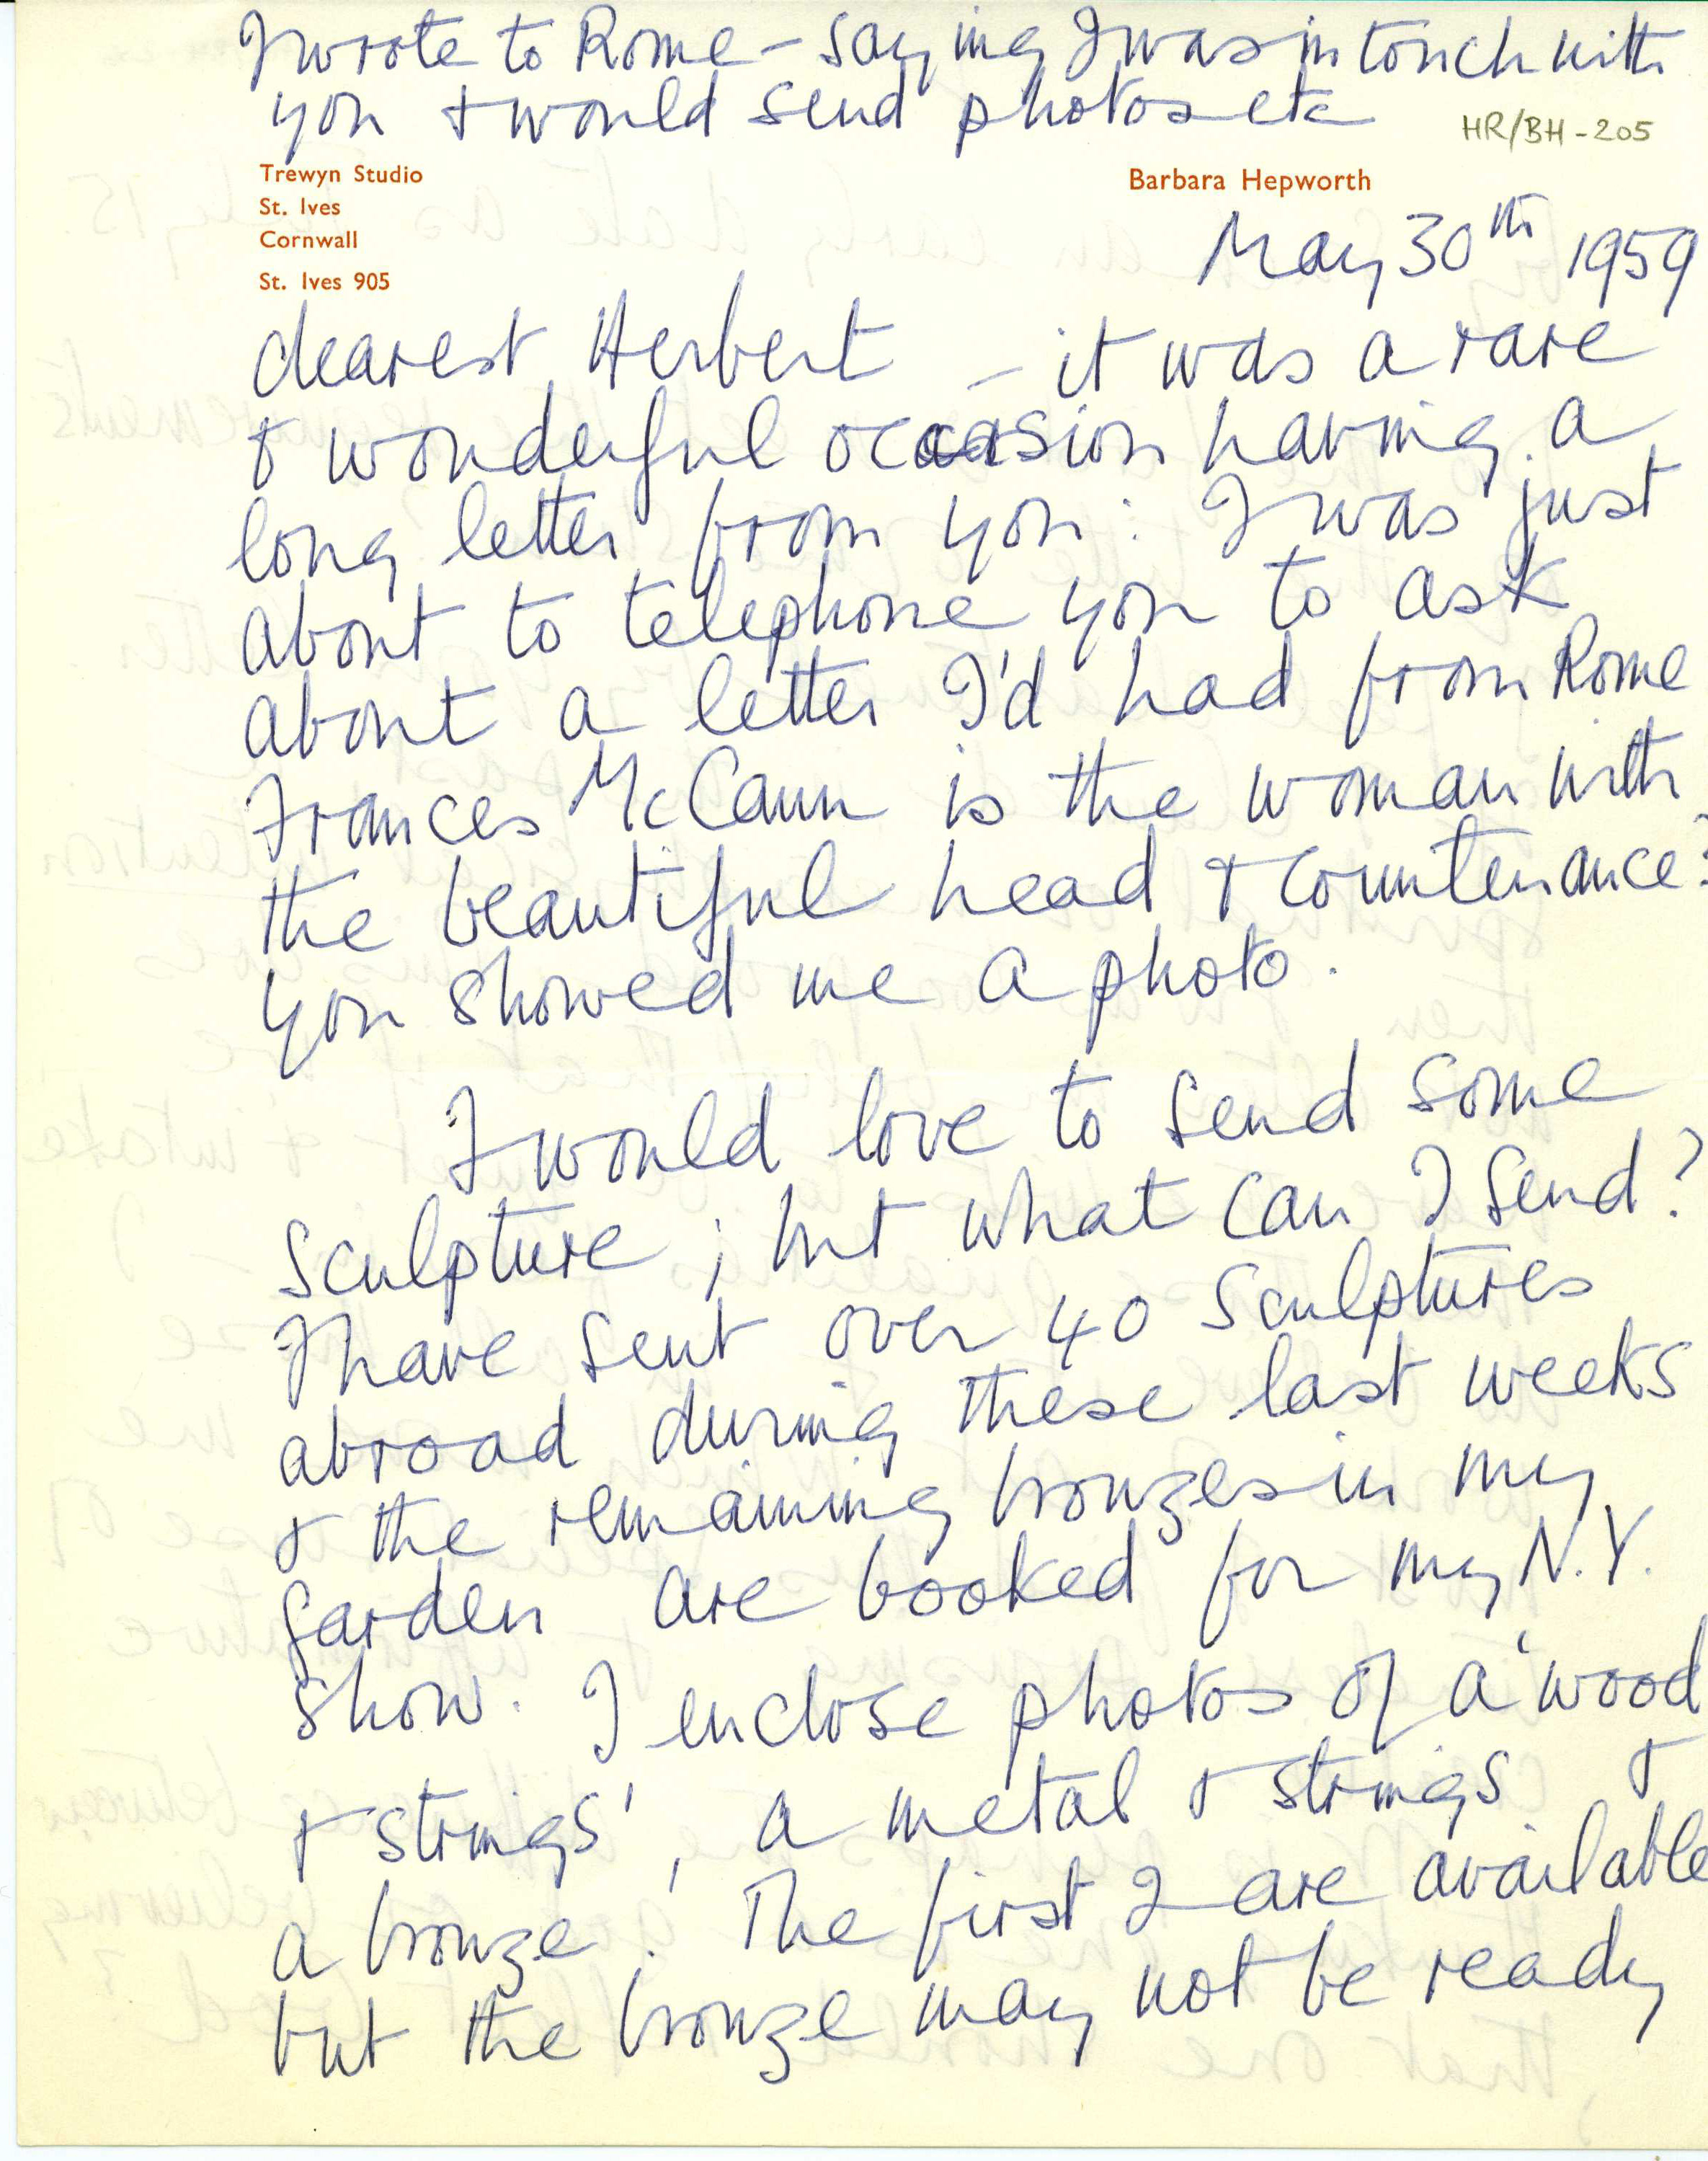 I wrote to Rome – saying I was in touch with
you + would send photos etc
HR/BH-205
Trewyn Studio
St. Ives
Cornwall
St. Ives 905
Barbara Hepworth
May 30th 1959
dearest Herbert – it was a rare
+ wonderful occasion having a
long letter from you: I was just
about to telephone you to ask
about a letter I'd had from Rome
Frances McCann is the woman with
the beautiful head + countenance?
you showed me a photo.
I would love to send some
sculpture; but what can I send?
I have sent over 40 sculptures
abroad during these last weeks
+ the remaining bronzes in my
garden are booked for my N.Y.
show. I enclose photos of a 'wood
+ strings', a metal + strings +
a bronze. The first 2 are available
but the bronze may not be ready